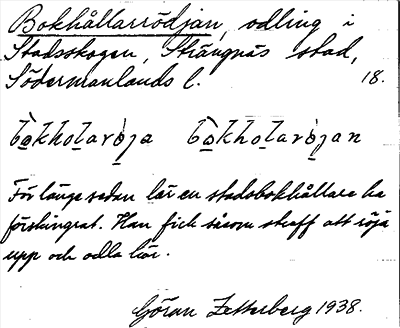 Bokhållarrödjan, odling i
Stadsskogen, Strängnäs stad,
Södermanlands l. 18.
bo̱kho̱larö̱ja bo̱kho̱larö̱jan
För länge sedan lär en stadsbokhållare ha
förskingrat. Han fick såsom straff att röja
upp och odla här.
Göran Zetterberg 1938.